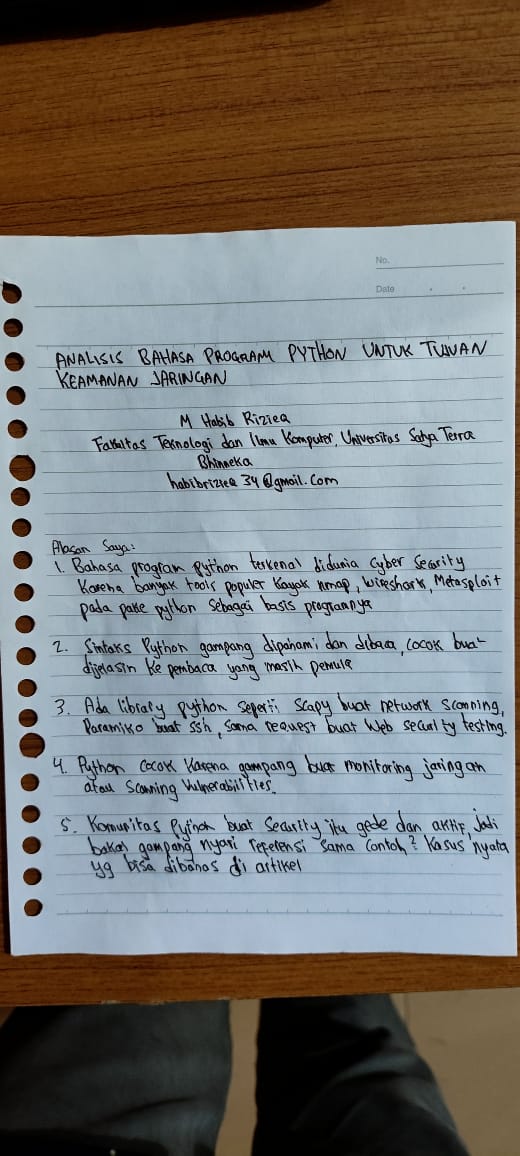 No.
Date
ANALISIS BAHASA PROGRAM PYTHON UNTUK TUJUAN
KEAMANAN JARINGAN
M Habib Rizieq
Fakultas Teknologi dan Ilmu Komputer, Universitas Satya Terra
Bhinneka
habibrizieq34@gmail.com
Alasan Saya:
1. Bahasa program python terkenal didunia Cyber Security
Karena banyak tools populer kayak nmap, wireshark, Metasploit
pada pake python sebagai basis programnya
2. Sintaks Python gampang dipahami dan dibaca, cocok buat
dijelasin ke pembaca yang masih pemula
3. Ada library python seperti scapy buat network scanning,
Paramiko buat ssh, sama request buat web security testing.
4. Python cocok karena gampang buat monitoring jaringan
atau scanning vulnerabilities.
5. Komunitas Python buat security itu gede dan aktif, jadi
bakal gampang nyari referensi sama contoh2 kasus nyata
yg bisa dibahas di artikel